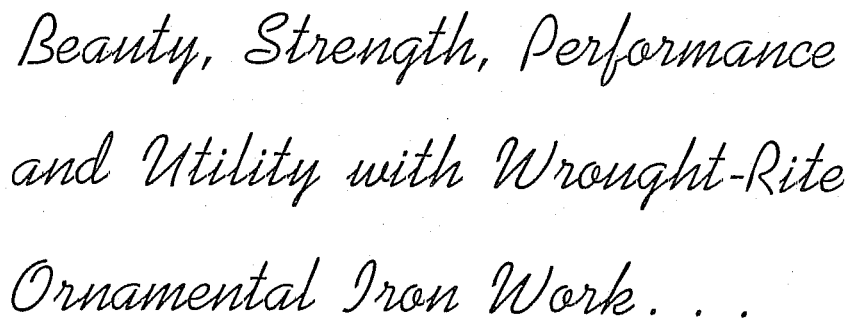 Beauty, Strength, Performance
and Utility with Wrought-Rite
Ornamental Iron Work. . .